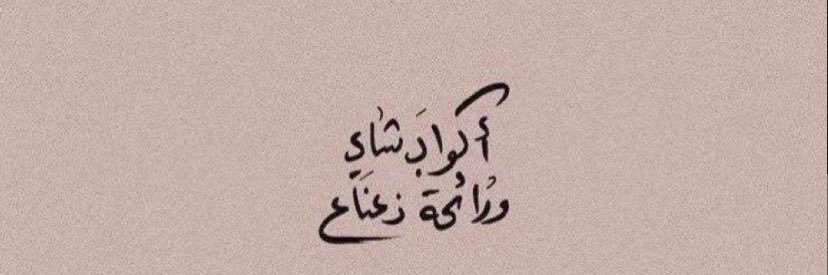 أكواب شاي
ورائحة نعناع